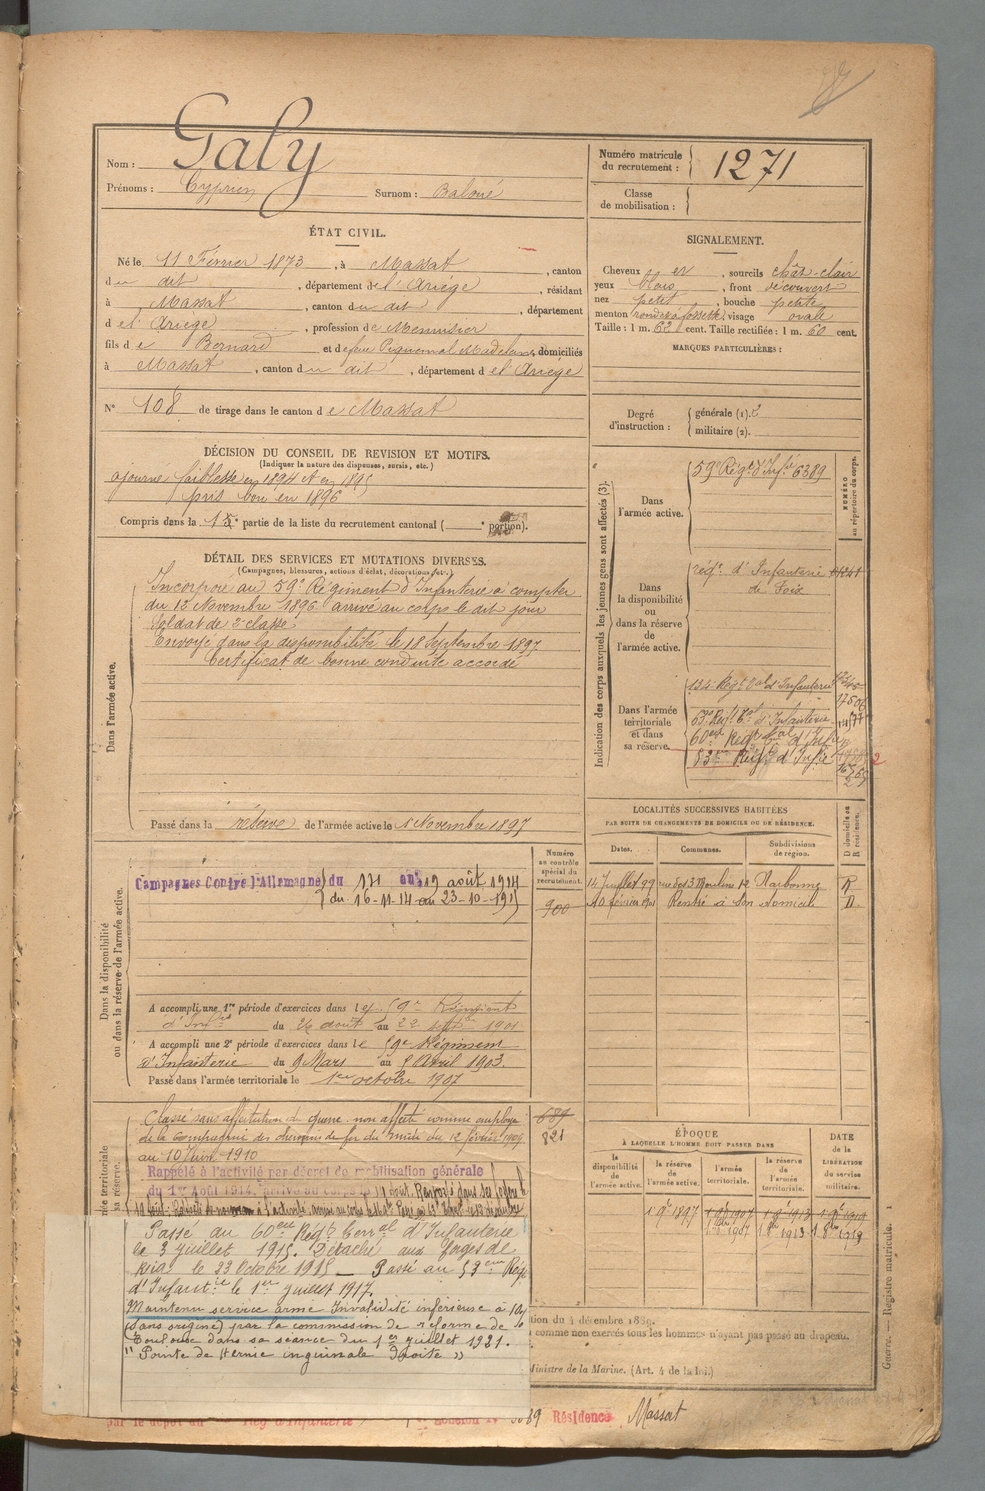 Nom : Galy
Prénoms : Cyprien Surnom : Baloué
Numéro matricule du recrutement : 1271
Classe de mobilisation :
ÉTAT CIVIL.
Né le 11 Février 1873, à Massat, canton
du dit, département de l'Ariège, résidant
à Massat, canton du dit, département
de l'Ariège, profession de Menuisier
fils de Bernard et de feue Piquemal Madeleine, domiciliés
à Massat, canton du dit, département de l'Ariège
N° 108 de tirage dans le canton de Massat
SIGNALEMENT.
Cheveux et, sourcils chât-clair
yeux bleus, front découvert
nez petit, bouche petite
menton rond à fossette, visage ovale
Taille : 1 m. 62 cent. Taille rectifiée : 1 m. 60 cent.
MARQUES PARTICULIÈRES :
Degré d'instruction : générale (1). 2
militaire (2).
DÉCISION DU CONSEIL DE REVISION ET MOTIFS.
(Indiquer la nature des dispenses, sursis, etc.)
ajourné faiblesse en 1894 et en 1895
pris bon en 1896
Compris dans la 1e partie de la liste du recrutement cantonal ( e portion).
DÉTAIL DES SERVICES ET MUTATIONS DIVERSES.
(Campagnes, blessures, actions d'éclat, décorations, etc.)
Dans l'armée active.
Incorporé au 59e Régiment d'Infanterie à compter
du 15 Novembre 1896 arrivé au corps le dit jour
Soldat de 2e classe
Envoyé dans la disponibilité le 18 Septembre 1897
Certificat de bonne conduite accordé
Passé dans la réserve de l'armée active le 1 Novembre 1897
Indication des corps auxquels les jeunes gens sont affectés (3).
NUMÉRO au répertoire du corps.
Dans l'armée active.
59e Régt d'Infie 6389
Dans la disponibilité ou dans la réserve de l'armée active.
régt d'Infanterie
de Foix
Dans l'armée territoriale et dans sa réserve.
134 Régt tal d'Infanterie
63e Regt Tal d'Infanterie
60eme Regt tal d'Infie
83eme Régt d'Infie
LOCALITÉS SUCCESSIVES HABITÉES
PAR SUITE DE CHANGEMENTS DE DOMICILE OU DE RÉSIDENCE.
Dates. Communes. Subdivisions de région. D domicile ou R résidence.
14 Juillet 99 rue des 3 Moulins 12 Narbonne R
10 février 1901 Rentré à son domicile D
Dans la disponibilité ou dans la réserve de l'armée active.
Numéro au contrôle spécial du recrutement.
900
Campagnes Contre l'Allemagne du 171 au 19 août 1914
du 16-11-14 au 23-10-15
A accompli une 1re période d'exercices dans le 59e Régiment
d'Infie du 26 août au 22 septbre 1901
A accompli une 2e période d'exercices dans le 59e Régiment
d'Infanterie du 9 Mars au 5 Avril 1903.
Passé dans l'armée territoriale le 1er octobre 1907
Classé sans affectation du guerre non affecté comme employé
de la Compagnie des chemins de fer du midi du 12 février 1909
au 10 1910
689
821
Rappelé à l'activité par décret de mobilisation générale
du 1er Août 1914, arrivé au corps le 11 août. Renvoyé dans ses foyers le
Passé au 60eme Régt Terral d'Infanterie
le 3 juillet 1915. Détaché aux forges de
le 23 Octobre 1915 — Passé au 83eme Régt
d'Infantie le 1er juillet 1917.
Maintenu service armé Invalidité inférieure à 10%
(sans origine) par la commission de réforme de
Toulouse dans sa séance du 1er juillet 1921.
" Pointe de Hernie inguinale droite "
ÉPOQUE
À LAQUELLE L'HOMME DOIT PASSER DANS
la disponibilité de l'armée active. la réserve de l'armée active. l'armée territoriale. la réserve de l'armée territoriale.
DATE de la LIBÉRATION du service militaire.
1 9e 1897 1 9e 1907 1 9e 1913 1 9e 1919
tion du 4 décembre 1889.
comme non exercés tous les hommes n'ayant pas passé au drapeau.
Ministre de la Marine. (Art. 4 de la loi.)
Guerre. — Registre matricule. 1
par le dépôt du Rég. d'Infanterie
Résidence Massat